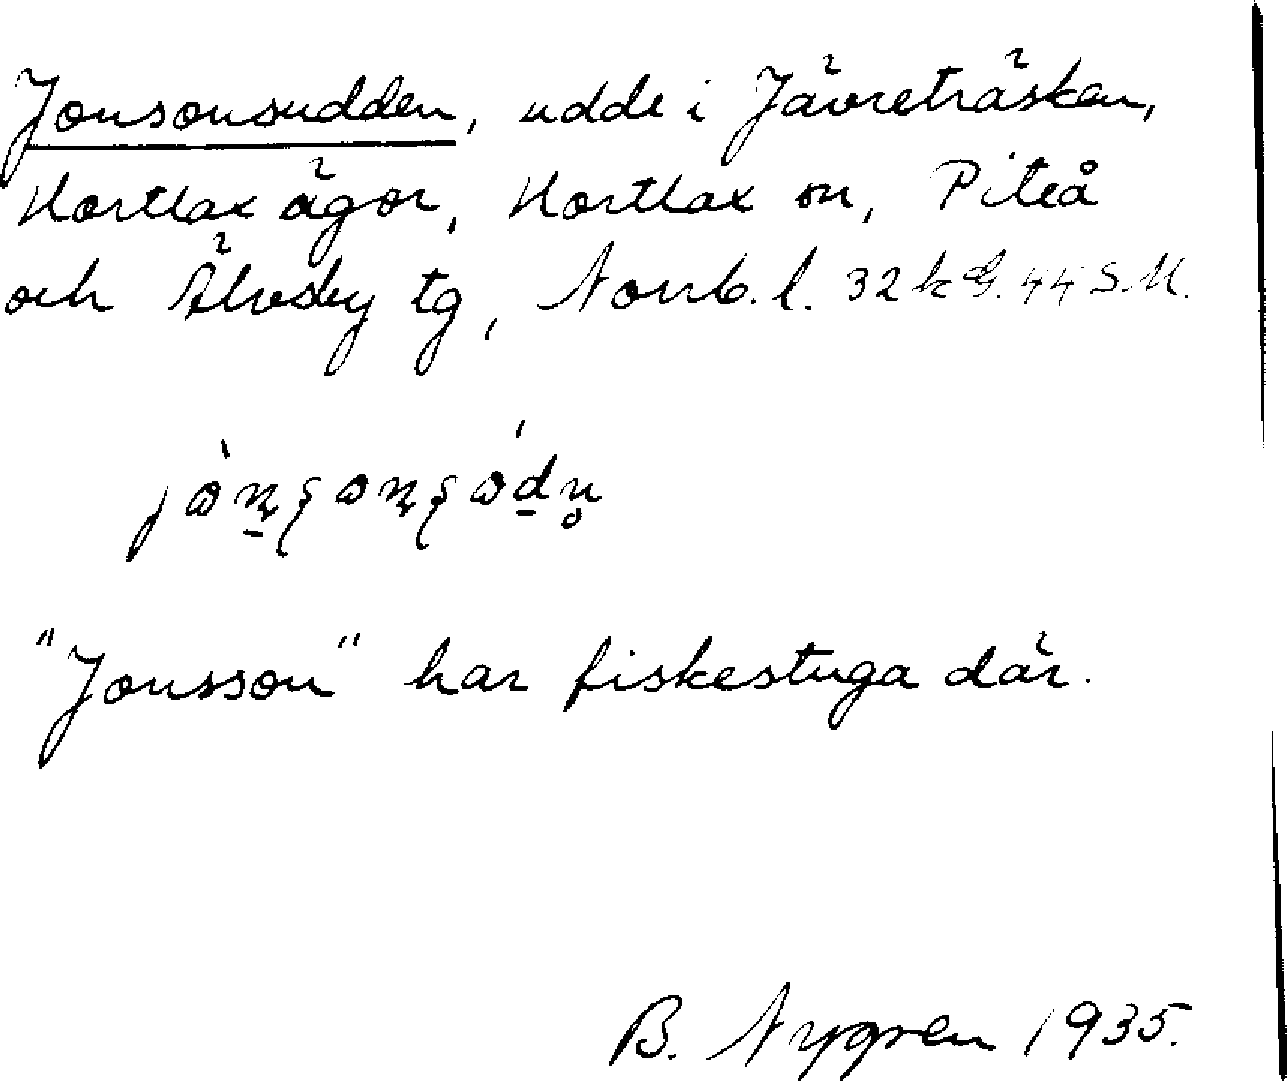 Jonsonsudden, udde i Jävreträsken,
Hortlax ägor, Hortlax sn, Piteå
och Älvsby tg, Norrb. l. 32 k G. 44 S.M.
"Jonsson" har fiskestuga där.
B. Nygren 1935.